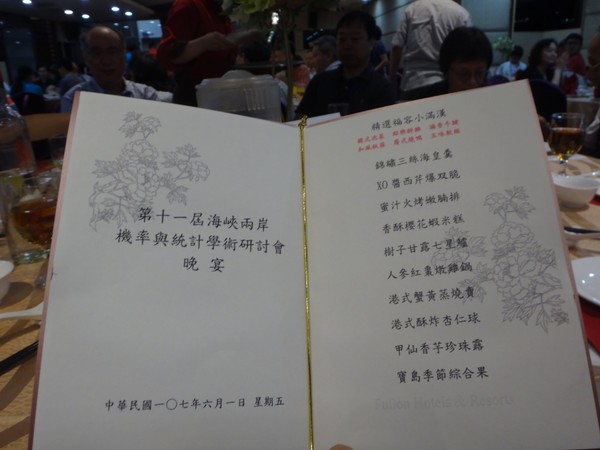 第十一屆海峽兩岸
機率與統計學術研討會
晚宴
中華民國一〇七年六月一日 星期五
精選福容小滿漢
錦繡三絲海皇羹
XO醬西芹爆双脆
蜜汁火烤嫩腩排
香酥櫻花蝦米糕
樹子甘露七星鱸
人參紅棗燉雞鍋
港式蟹黃蒸燒賣
港式酥炸杏仁球
甲仙香芋珍珠露
寶島季節綜合果
Hotels & Resorts